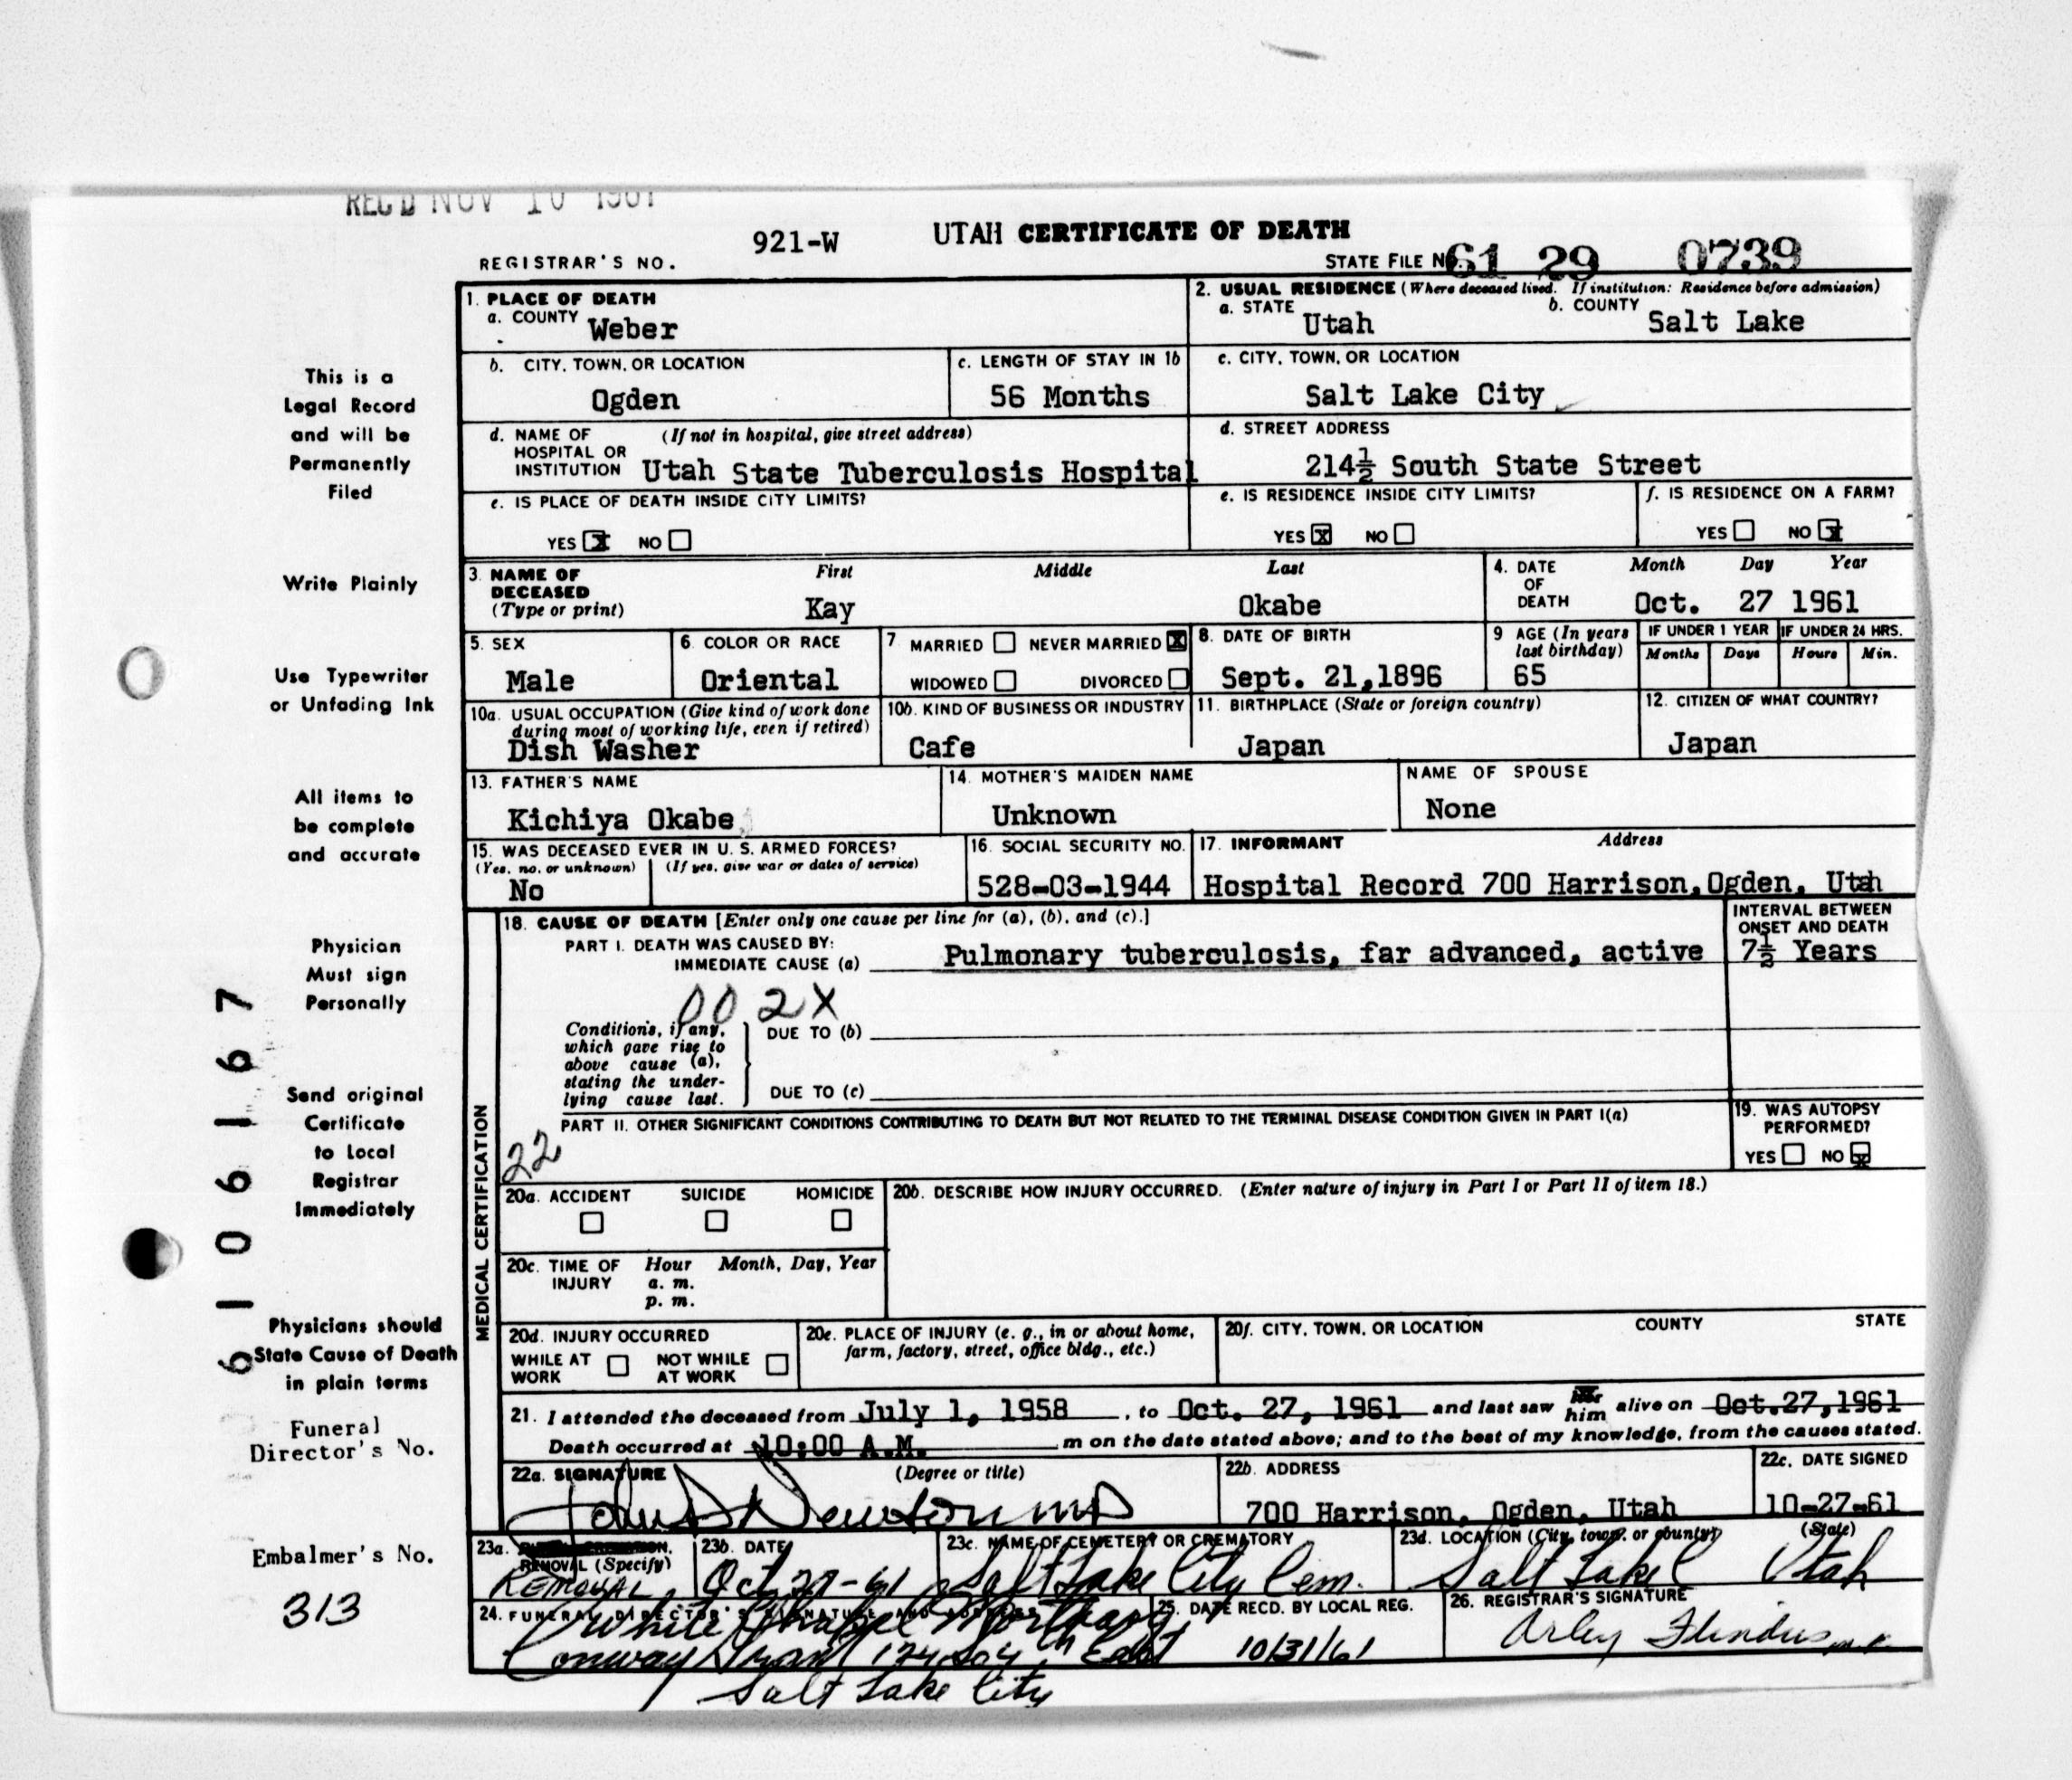 REC'D NOV 10 1961
921-W UTAH CERTIFICATE OF DEATH
REGISTRAR'S NO. STATE FILE NO. 61 29 0739
1. PLACE OF DEATH
a. COUNTY Weber
2. USUAL RESIDENCE (Where deceased lived. If institution: Residence before admission)
a. STATE Utah b. COUNTY Salt Lake
b. CITY, TOWN, OR LOCATION Ogden
c. LENGTH OF STAY IN 1b 56 Months
c. CITY, TOWN, OR LOCATION Salt Lake City
d. NAME OF HOSPITAL OR INSTITUTION (If not in hospital, give street address) Utah State Tuberculosis Hospital
d. STREET ADDRESS 214½ South State Street
e. IS PLACE OF DEATH INSIDE CITY LIMITS?
YES X NO
e. IS RESIDENCE INSIDE CITY LIMITS?
YES X NO
f. IS RESIDENCE ON A FARM?
YES NO X
3. NAME OF DECEASED (Type or print) First Middle Last
Kay Okabe
4. DATE OF DEATH Month Day Year
Oct. 27 1961
5. SEX Male
6. COLOR OR RACE Oriental
7 MARRIED NEVER MARRIED X
WIDOWED DIVORCED
8. DATE OF BIRTH Sept. 21,1896
9 AGE (In years last birthday) 65
IF UNDER 1 YEAR Months Days
IF UNDER 24 HRS. Hours Min.
10a. USUAL OCCUPATION (Give kind of work done during most of working life, even if retired)
Dish Washer
10b. KIND OF BUSINESS OR INDUSTRY Cafe
11. BIRTHPLACE (State or foreign country) Japan
12. CITIZEN OF WHAT COUNTRY? Japan
13. FATHER'S NAME Kichiya Okabe
14. MOTHER'S MAIDEN NAME Unknown
NAME OF SPOUSE None
15. WAS DECEASED EVER IN U. S. ARMED FORCES?
(Yes, no, or unknown) (If yes, give war or dates of service)
No
16. SOCIAL SECURITY NO. 528-03-1944
17. INFORMANT Address
Hospital Record 700 Harrison, Ogden, Utah
MEDICAL CERTIFICATION
18. CAUSE OF DEATH [Enter only one cause per line for (a), (b), and (c).]
PART I. DEATH WAS CAUSED BY:
IMMEDIATE CAUSE (a) Pulmonary tuberculosis, far advanced, active
INTERVAL BETWEEN ONSET AND DEATH
7½ Years
002X
Conditions, if any, which gave rise to above cause (a), stating the underlying cause last.
DUE TO (b)
DUE TO (c)
PART II. OTHER SIGNIFICANT CONDITIONS CONTRIBUTING TO DEATH BUT NOT RELATED TO THE TERMINAL DISEASE CONDITION GIVEN IN PART I(a)
22
19. WAS AUTOPSY PERFORMED?
YES NO X
20a. ACCIDENT SUICIDE HOMICIDE
20b. DESCRIBE HOW INJURY OCCURRED. (Enter nature of injury in Part I or Part II of item 18.)
20c. TIME OF INJURY Hour a. m. p. m. Month, Day, Year
20d. INJURY OCCURRED
WHILE AT WORK NOT WHILE AT WORK
20e. PLACE OF INJURY (e. g., in or about home, farm, factory, street, office bldg., etc.)
20f. CITY, TOWN, OR LOCATION COUNTY STATE
21. I attended the deceased from July 1, 1958, to Oct. 27, 1961 and last saw him alive on Oct.27,1961
Death occurred at 10:00 A.M. m on the date stated above; and to the best of my knowledge, from the causes stated.
22a. SIGNATURE (Degree or title)
John D Newton MD
22b. ADDRESS
700 Harrison, Ogden, Utah
22c. DATE SIGNED
10-27-61
23a. REMOVAL (Specify)
REMOVAL
23b. DATE
Oct 27-61
23c. NAME OF CEMETERY OR CREMATORY
Salt Lake City Cem.
23d. LOCATION (City, town, or county) (State)
Salt Lake C Utah
24. FUNERAL DIRECTOR'S SIGNATURE AND ADDRESS
White Chapel Mortuary
Conway 124 So 4th East
Salt Lake City
25. DATE RECD. BY LOCAL REG.
10/31/61
26. REGISTRAR'S SIGNATURE
Arley Flinders
This is a
Legal Record
and will be
Permanently
Filed
Write Plainly
Use Typewriter
or Unfading Ink
All items to
be complete
and accurate
Physician
Must sign
Personally
Send original
Certificate
to Local
Registrar
Immediately
Physicians should
State Cause of Death
in plain terms
Funeral
Director's No.
Embalmer's No.
313
6106167